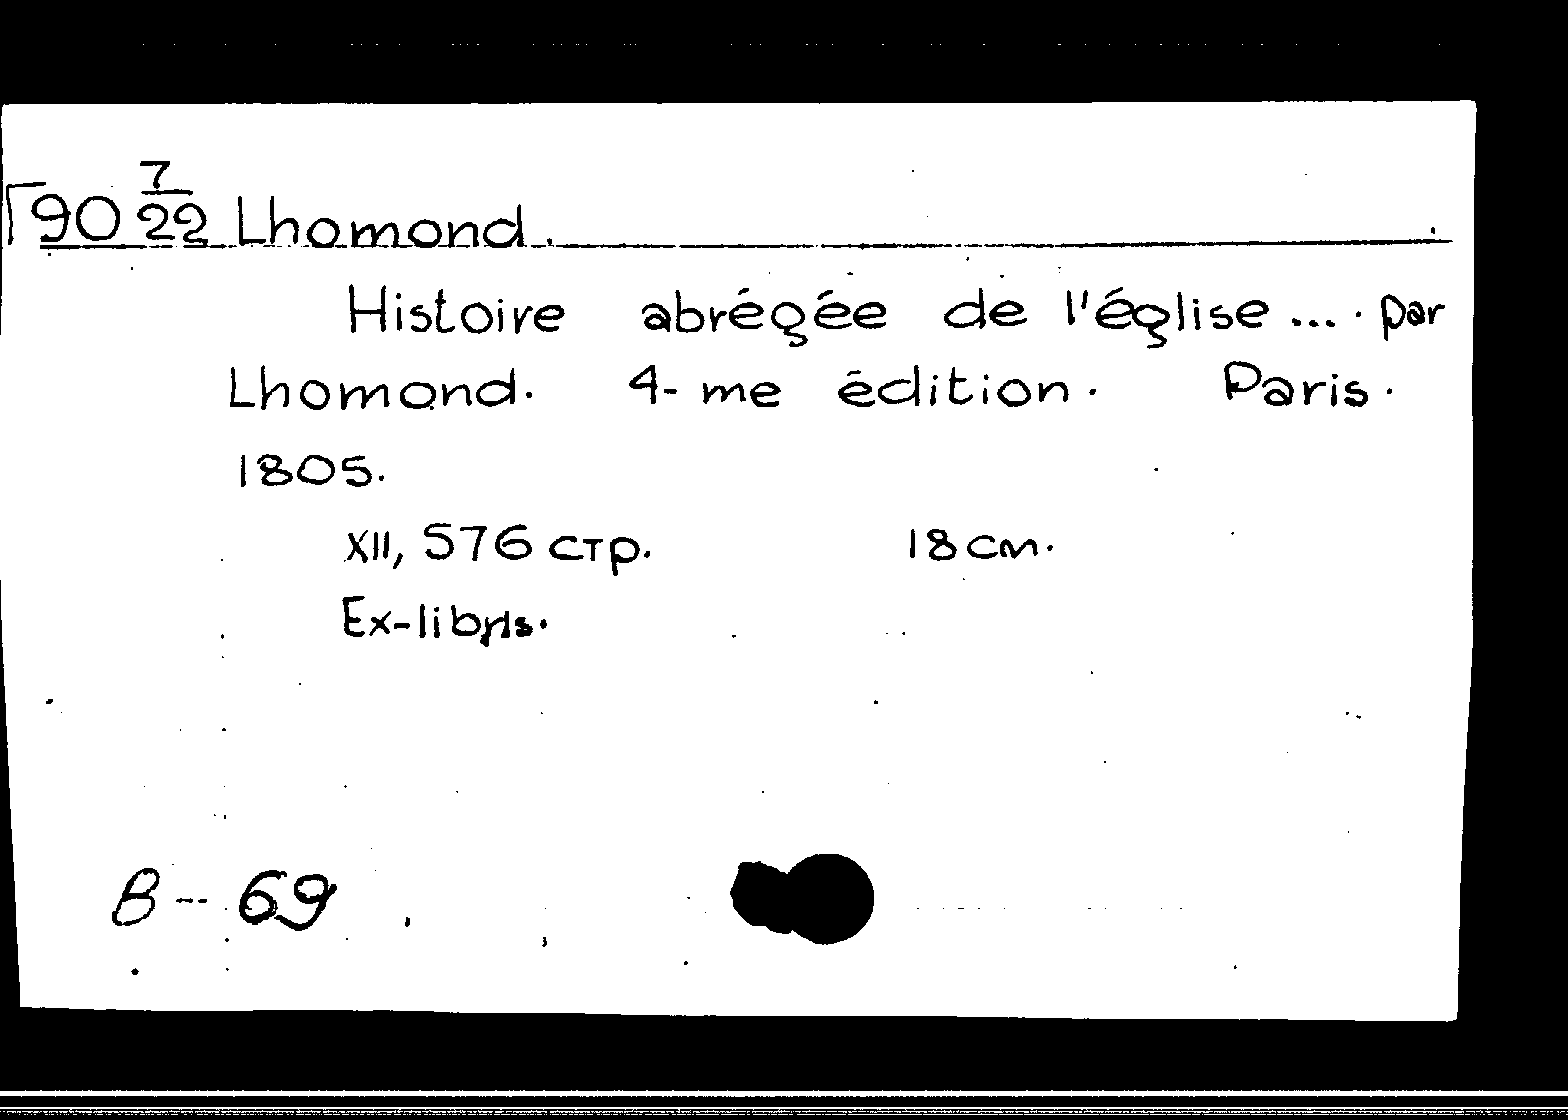 Г90 7/22 Lhomond.
Histoire abrégée de l'église ... . par
Lhomond. 4-me édition. Paris.
1805.
XII, 576 стр. 18 cm.
Ex-libris.
В -- 69